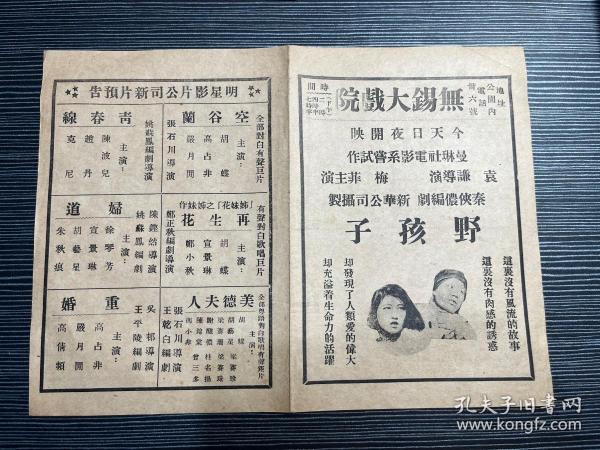 地址
公園內
電話
廿六號
無錫大戲院
時間
今天日夜開映
曼琳社電影系嘗試作
袁謙導演 梅菲主演
秦俠儂編劇 新華公司攝製
野孩子
這裏沒有風流的故事
這裏沒有肉感的誘惑
却發現了人類愛的偉大
却充溢着生命力的活躍
明星影片公司新片預告
全部對白有聲巨片
空谷蘭
主演：
胡蝶
高占非
嚴月閒
張石川導演
青春線
主演：
陳波兒
趙丹
克尼
姚蘇鳳編劇導演
有聲對白歌唱巨片
「姊妹花」之姊妹作
再生花
主演：
胡蝶
宣景琳
鄭小秋
鄭正秋編劇導演
婦道
主演：
徐琴芳
宣景琳
胡藝星
朱秋痕
陳鏗然導演
姚蘇鳳編劇
全部粵語對白歌唱有聲巨片
美德夫人
主演：
胡蝶
胡藝星
梁賽珍
梁賽珊
梁賽瑚
謝醒儂
桂名揚
陳錦棠
曾三多
馮小非
張石川導演
王乾白編劇
重婚
主演：
高占非
嚴月閒
高倩蘋
吳邨導演
王平陵編劇
孔夫子旧书网
www.kongfz.com